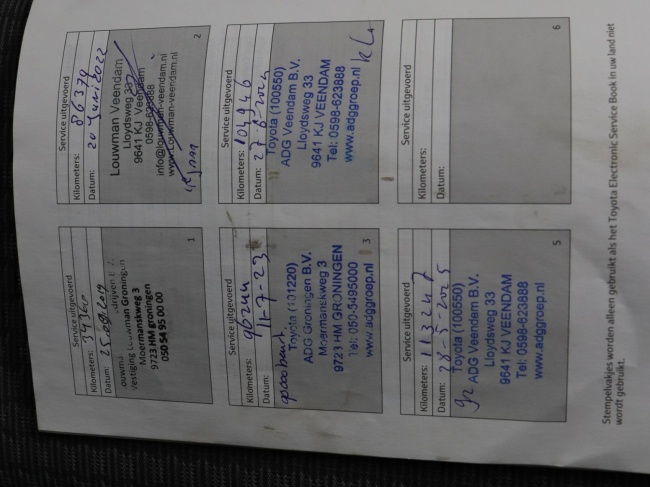 Service uitgevoerd
Kilometers:
Datum:
Vestiging Louwman Groningen
Moermanskweg 3
9723 HM groningen
050 54 95 00 00
1
Service uitgevoerd
Kilometers: 86379
Datum: 20 Juni 2022
Louwman Veendam
Lloydsweg 33
9641 KJ Veendam
0598-623888
info@louwman-veendam.nl
www.Louwman-veendam.nl
2
Service uitgevoerd
Kilometers:
Datum: 11-7-23
Toyota (101220)
ADG Groningen B.V.
Moermanskweg 3
9723 HM GRONINGEN
Tel: 050-5495000
www.adggroep.nl
3
Service uitgevoerd
Kilometers: 104946
Datum:
Toyota (100550)
ADG Veendam B.V.
Lloydsweg 33
9641 KJ VEENDAM
Tel: 0598-623888
www.adggroep.nl
Service uitgevoerd
Kilometers:
Datum: 28-5-2025
Toyota (100550)
ADG Veendam B.V.
Lloydsweg 33
9641 KJ VEENDAM
Tel: 0598-623888
www.adggroep.nl
5
Service uitgevoerd
Kilometers:
Datum:
6
Stempelvakjes worden alleen gebruikt als het Toyota Electronic Service Book in uw land niet
wordt gebruikt.